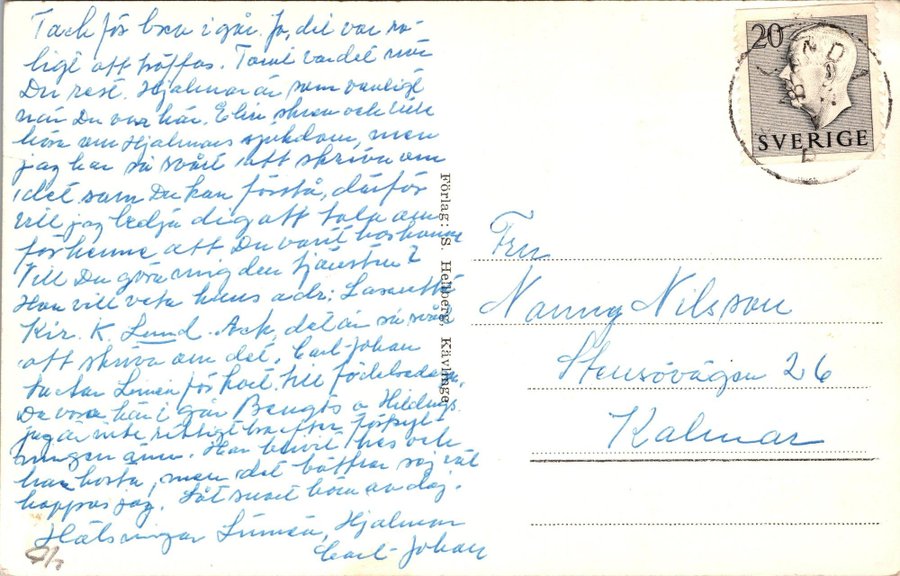 Tack för brev i går. Jo, det var ro-
ligt att träffas. Tomt var det när
Du rest. Hjalmar är som vanligt
när Du var här. Elin skrev och vill
höra om Hjalmars sjukdom, men
jag har så svårt att skriva om
det som Du kan förstå, därför
vill jag bedja dig att tala om
för henne att Du varit hos honom
Vill Du göra mig den tjänsten?
Hon vill veta hans adr: Lasarettet
Kir. K. Lund. Ack det är så svårt
att skriva om det. Carl-Johan
tackar Linnéa för kort till födelsedagen.
De voro här i går Bengts o Hildings.
jag är inte riktigt bra efter förkyl-
ningen ännu. Har blivit hes och
har hosta, men det bättrar sig väl
hoppas jag. Låt snart höra av dig.
Hälsningar Linnéa, Hjalmar
Carl-Johan
Förlag: S. Hellberg, Kävlinge
20
SVERIGE
Fru
Nanny Nilsson
Stensövägen 26
Kalmar